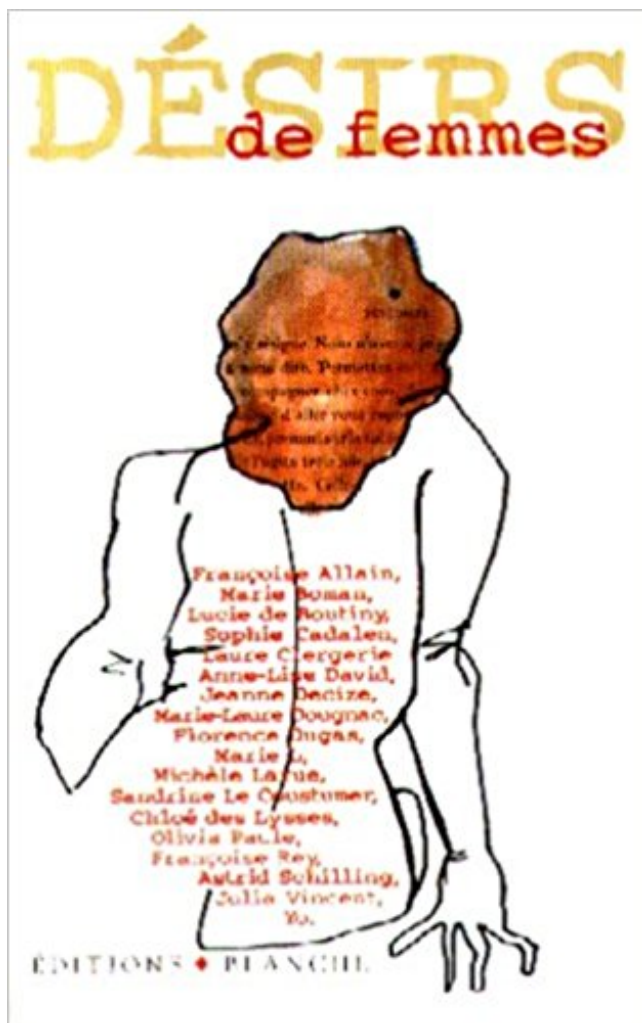 DÉSIRS
de femmes
Nous n'avons
dire. Permettez
compagner chez vous
d'aller vous
Françoise Allain,
Marie Boman,
Lucie de Boutiny,
Sophie Cadalen,
Laure Clergerie
Anne-Lise David,
Jeanne Decize,
Marie-Laure Dougnac,
Florence Dugas,
Marie L,
Michèle Larue,
Sandrine Le Coustumer,
Chloé des Lysses,
Olivia Paule,
Françoise Rey,
Astrid Schilling,
Julia Vincent,
Yo.
ÉDITIONS ♦ BLANCHE